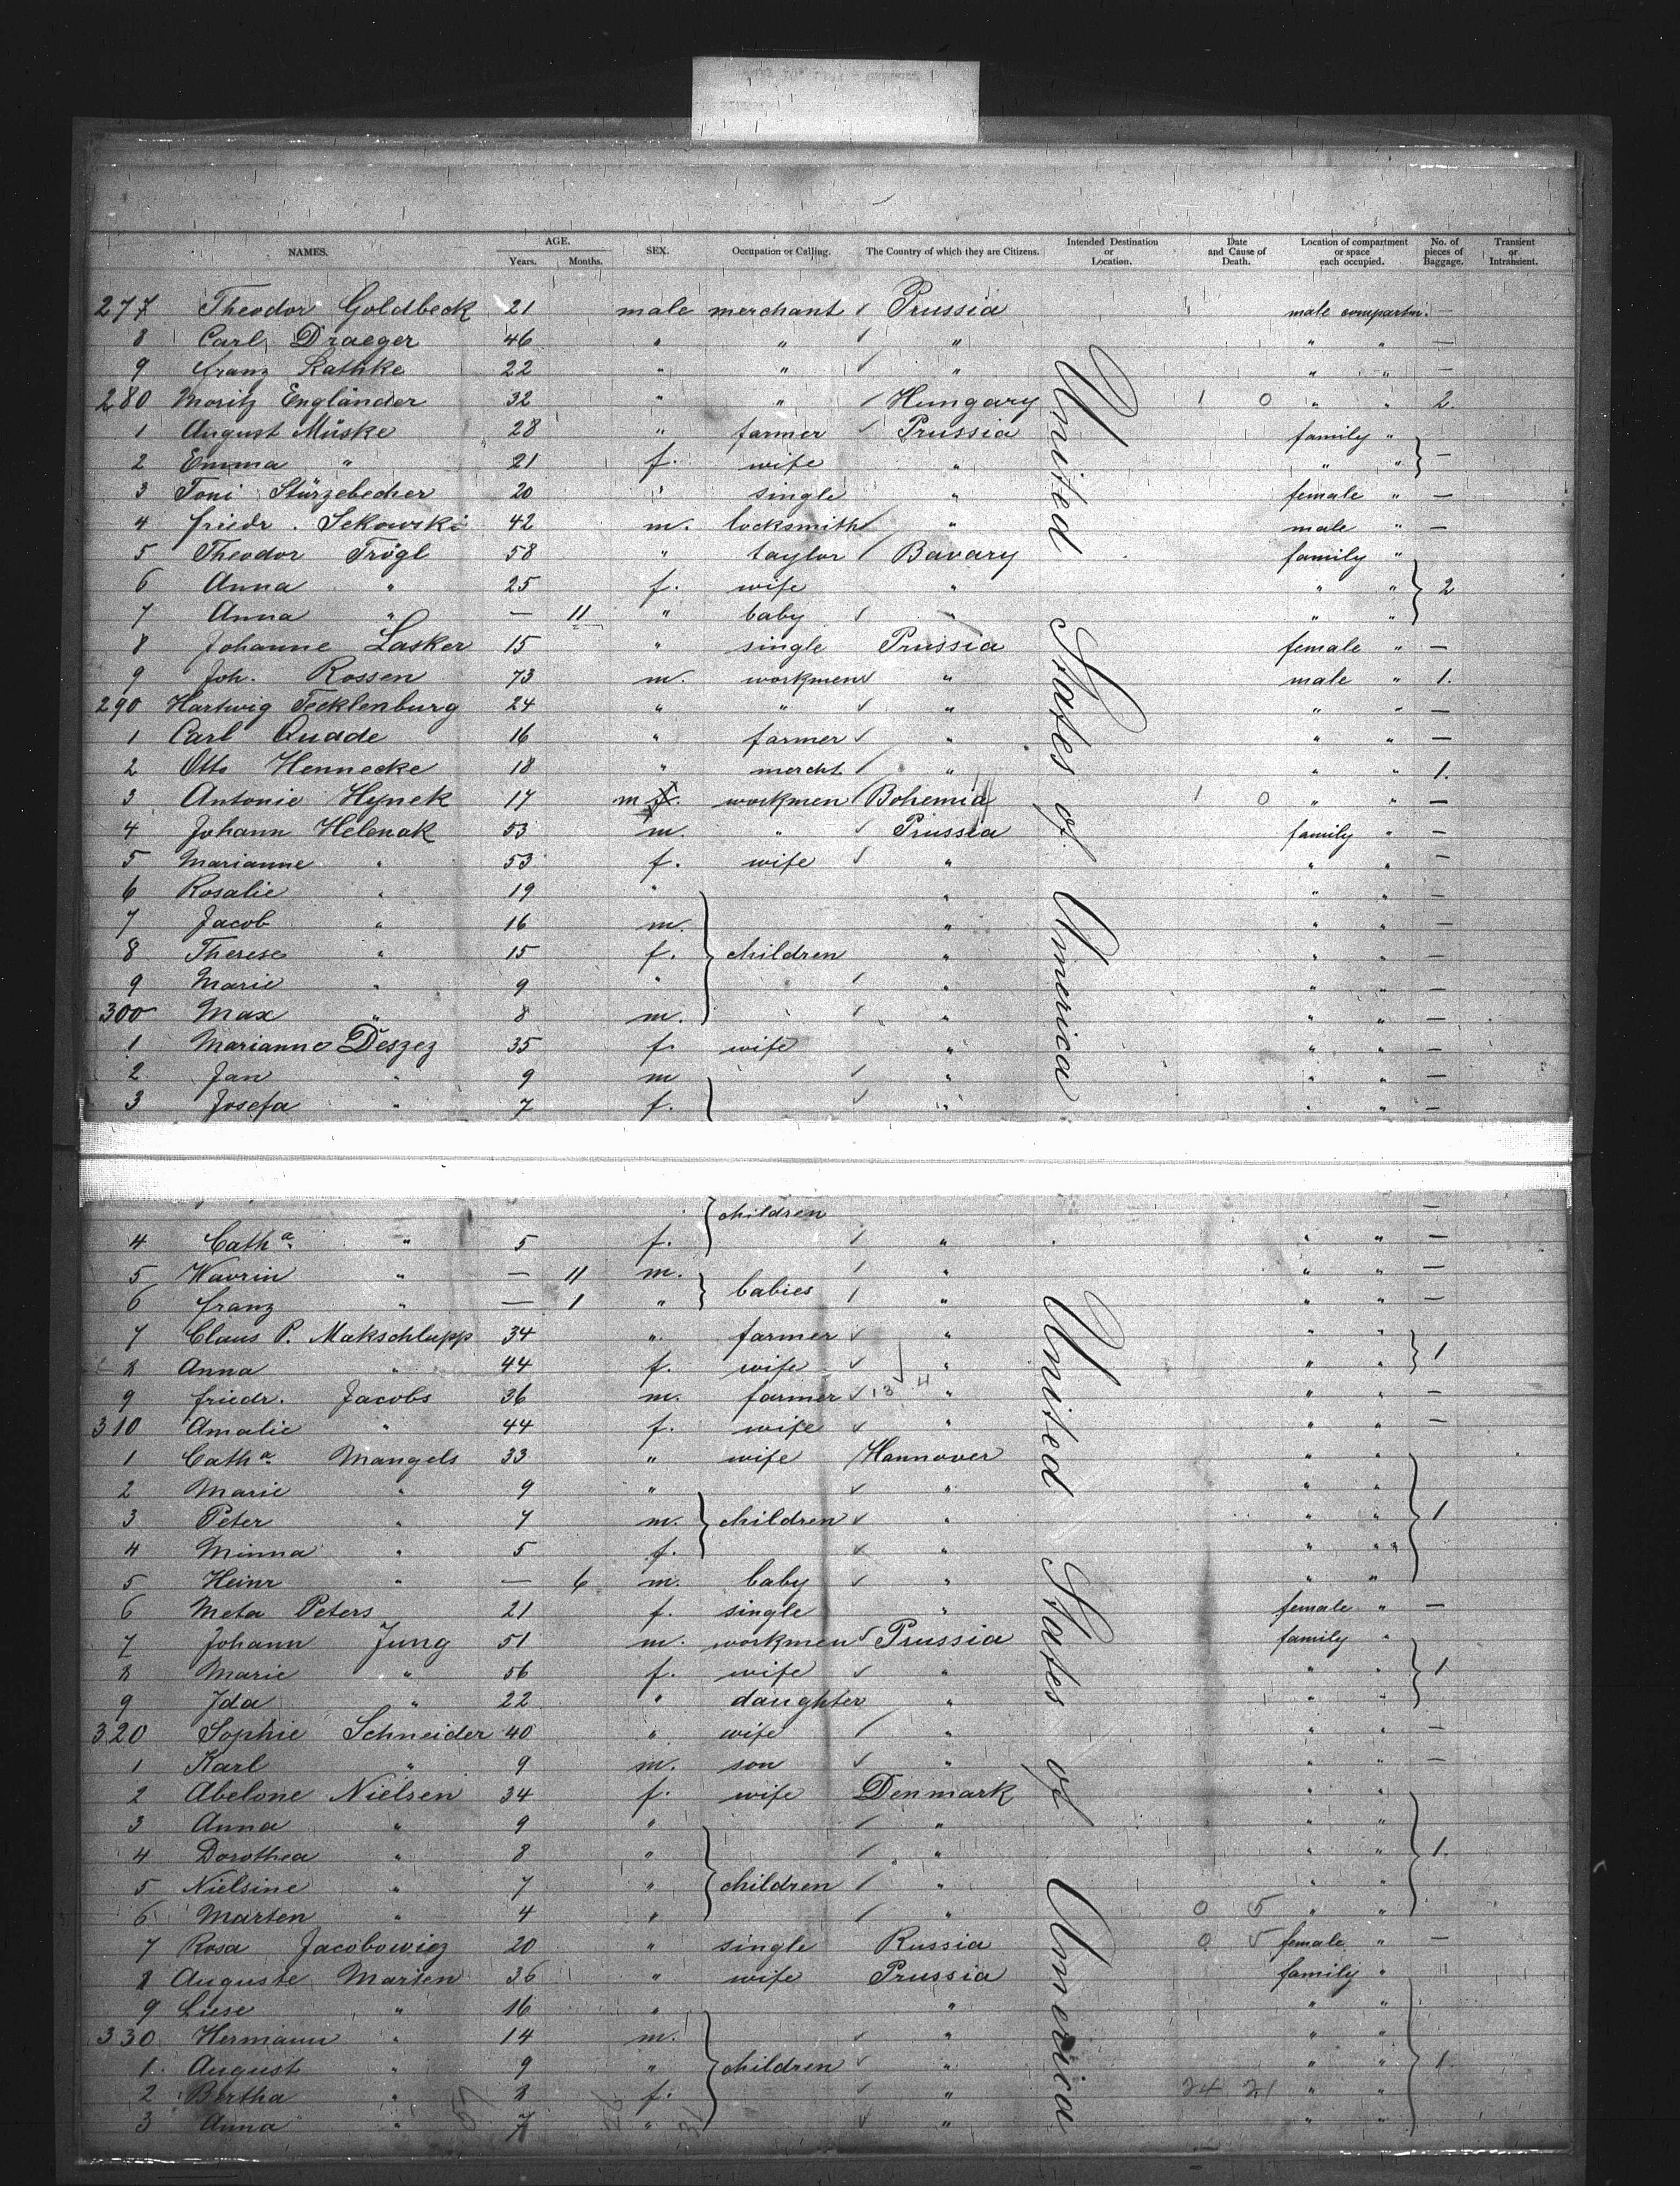 NAMES. AGE. Years. Months. SEX. Occupation or Calling. The Country of which they are Citizens. Intended Destination or Location. Date and Cause of Death. Location of compartment or space each occupied. No. of pieces of Baggage. Transient or Intransient.
277 Theodor Goldbeck 21 male merchant Prussia male compartm. —
8 Carl Draeger 46 " " " " " —
9 Franz Rathke 22 " " " " " —
280 Moritz Engländer 32 " " Hungary 1 0 " " 2.
1 August Müske 28 " farmer Prussia family "
2 Emma " 21 f. wife " " " —
3 Toni Stürzebecher 20 " single " female " —
4 Friedr. Sekowski 42 m. locksmith " male " —
5 Theodor Trögl 58 " taylor Bavary family "
6 Anna " 25 f. wife " " " 2
7 Anna " — 11 " baby " " "
8 Johanne Lasker 15 " single Prussia female " —
9 Joh. Rossen 73 m. workmen " male " 1.
290 Hartwig Tecklenburg 24 " " " " " —
1 Carl Quade 16 " farmer " " " —
2 Otto Hennecke 18 " mercht " " " 1.
3 Antonie Hynek 17 m f. workmen Bohemia 1 0 " " —
4 Johann Helenak 53 m. " Prussia family " —
5 Marianne " 53 f. wife " " " —
6 Rosalie " 19 " " " " —
7 Jacob " 16 m. " " " —
8 Therese " 15 f. children " " " —
9 Marie " 9 " " " " —
300 Max " 8 m. " " " —
1 Marianne Deszez 35 f. wife " " " —
2 Jan " 9 m " " " —
3 Josefa " 7 f. " " " —
United States of America
children —
4 Cath.a " 5 f. " " " —
5 Wavrin " — 11 m. " " " —
6 Franz " — 1 " babies " " " —
7 Claus P. Makschlupp 34 " farmer " " "
8 Anna " 44 f. wife " " " 1
9 Friedr. Jacobs 36 m. farmer 13 4 " " " —
310 Amalie " 44 f. wife " " " —
1 Cath.a Mangels 33 " wife Hannover " "
2 Marie " 9 " " " "
3 Peter " 7 m. children " " " 1
4 Minna " 5 f. " " "
5 Heinr " — 6 m. baby " " "
6 Meta Peters 21 f. single " female " —
7 Johann Jung 51 m. workmen Prussia family "
8 Marie " 56 f. wife " " " 1
9 Ida " 22 " daughter " " "
320 Sophie Schneider 40 " wife " " " —
1 Karl " 9 m. son " " " —
2 Abelone Nielsen 34 f. wife Denmark " "
3 Anna " 9 " " " "
4 Dorothea " 8 " " " " 1.
5 Nielsine " 7 " children " " "
6 Marten " 4 " " 0 5 " "
7 Rosa Jacobowiez 20 " single Russia 0 5 female " —
8 Auguste Marten 36 " wife Prussia family "
9 Luise " 16 " " " "
330 Hermann " 14 m. " " "
1 August " 9 " children " " " 1.
2 Bertha " 8 f. " 24 21 " "
3 Anna " 7 " " " "
United States of America